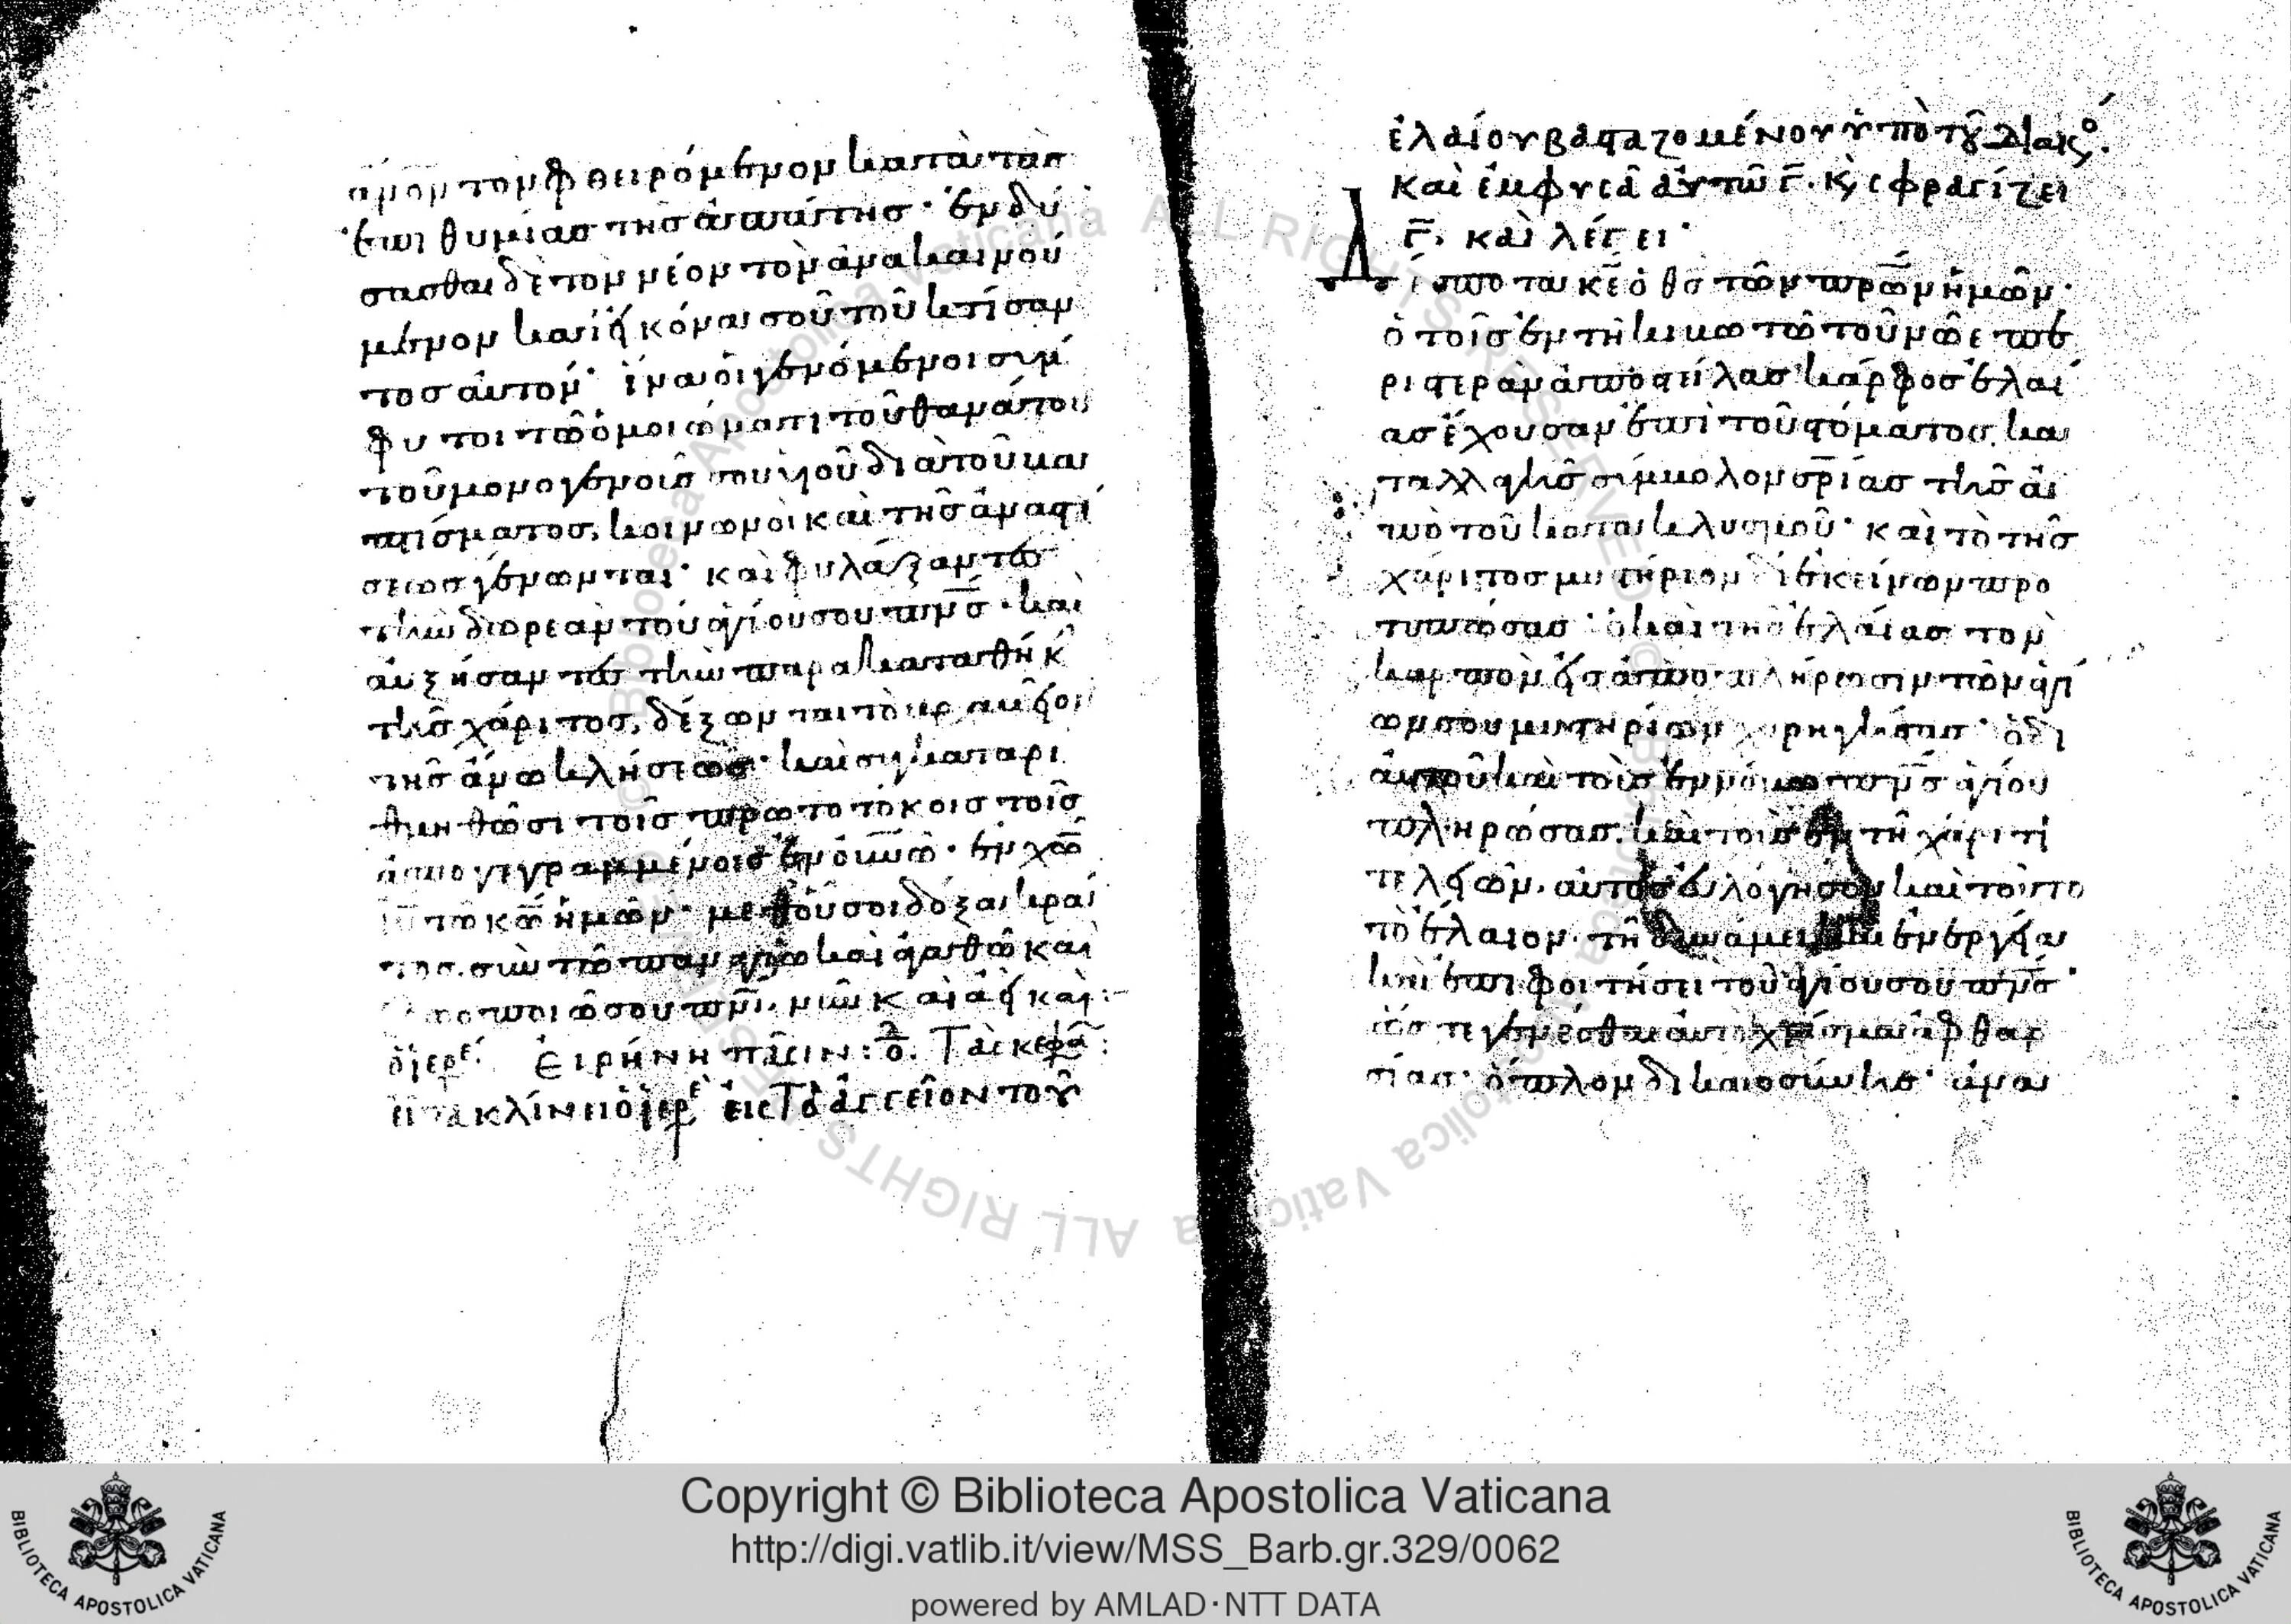 ἄνον τον φθειρόμενον κατὰ τὰς
ἐπιθυμίας τῆς ἀπάτης· ἐνδύ
σασθαι δὲ τὸν νέον τὸν ἀνακαινού
μενον κατ' εἰκόνα σοῦ τοῦ κτίσαν
τος αὐτόν· ἵνα οἱ γενόμενοι σύμ
φυτοι τῶ ὁμοιώματι τοῦ θανάτου
τοῦ μονογενοῦς σου υἱοῦ διὰ τοῦ βα
πτίσματος, κοινωνοὶ καὶ τῆς ἀναστά
σεως γένωνται· καὶ φυλάξαντες
τὴν δωρεὰν τοῦ ἁγίου σου πν̅ς̅· καὶ
αὐξήσαντες τὴν παρακαταθήκ
τῆς χάριτος, δέξωνται τὸ βραβεῖον
τῆς ἄνω κλήσεως· καὶ συγκαταρι
θμηθῶσι τοῖς πρωτοτόκοις τοῖς
ἀπογεγραμμένοις ἐν οὐν̅ω̅· ἐν χω̅
ιυ̅ τῶ κω̅ ἡμῶν· μεθ' οὗ σοι δόξα κρά
τος. σὺν τῶ παναγίω καὶ ἀγαθῶ καὶ
ζωοποιῶ σου πν̅ι̅. νῦν καὶ ἀεὶ καὶ :-
ὁ ἱερε. Εἰρήνη πᾶσιν: ὁ δ. Τὰς κεφα:
εἶτα κλίνει ὁ ἱερε εἰς τὸ ἀγγεῖον τοῦ
ἐλαίου βασταζομένου ὑπὸ τοῦ διακο.
καὶ ἐμφυσᾶ αὐτῶ γ̅. κ, σφραγίζει
γ̅. καὶ λέγει·
Δέσποτα κε̅ ὁ θς̅ τῶν πρω̅ν ἡμῶν·
ὁ τοῖς ἐν τῇ κιβωτῶ τοῦ νῶε πε
ριστερὰν ἀποστείλας κάρφος ἐλαί
ας ἔχουσαν ἐπὶ τοῦ στόματος, κα
ταλλαγῆς σύμβολον σρ̅ίας τῆς ἀ
πὸ τοῦ κατακλυσμοῦ· καὶ τὸ τῆς
χάριτος μυστήριον δι' ἐκείνων προ
τυπώσας· ὁ καὶ τῆς ἐλαίας τὸν
καρπὸν εἰς ἀποπλήρωσιν τῶν ἁγί
ων σου μυστηρίων χορηγήσας· ὁ δι'
αὐτοῦ καὶ τοὺς ἐν νόμω πν̅ς̅ ἁγίου
πληρώσας. καὶ τοὺς ἐν τῇ χάριτι
τελειῶν. αὐτὸς εὐλόγησον καὶ τοῦτο
τὸ ἔλαιον. τῇ δυνάμει καὶ ἐνεργεία
καὶ ἐπιφοιτήσει τοῦ ἁγίου σου πν̅ς̅·
ὥστε γενέσθαι αὐτὸ χρίσμα ἀφθαρ
σίας· ὅπλον δικαιοσύνης· ἀνα
Copyright © Biblioteca Apostolica Vaticana
http://digi.vatlib.it/view/MSS_Barb.gr.329/0062
powered by AMLAD·NTT DATA
BIBLIOTECA APOSTOLICA VATICANA
BIBLIOTECA APOSTOLICA VATICANA
© Biblioteca Apostolica Vaticana ALL RIGHTS RESERVED